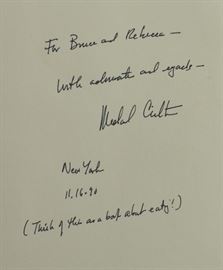 For Bruce and Rebecca —
With admiration and regards —
New York
11.16.90
(Think of this as a book about eating!)